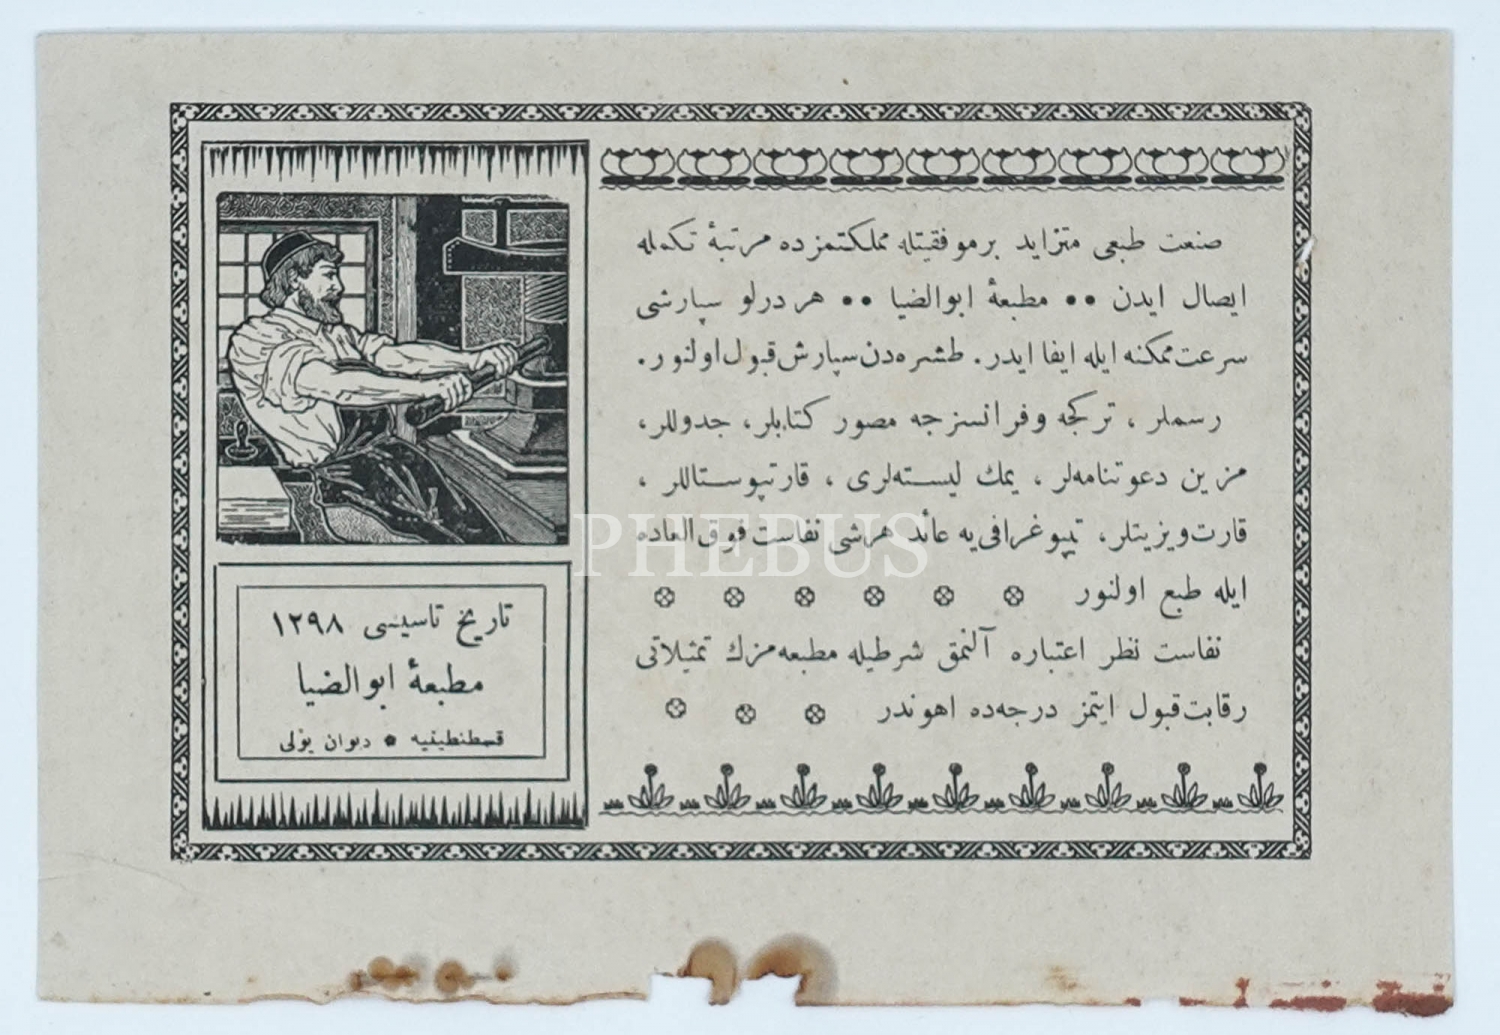 صنعت طبعی متزاید بر موفقیتله مملکتمزده مرتبهٔ تکمله
ایصال ایدن •• مطبعهٔ ابوالضیا •• هر درلو سپارشی
سرعت ممکنه ایله ایفا ایدر. طشره‌دن سپارش قبول اولنور.
رسملر، ترکجه و فرانسزجه مصور کتابلر، جدوللر،
مزین دعوتنامه‌لر، یمك لیسته‌لری، قارتپوستاللر،
قارت‌ویزیتلر، تیپوغرافی‌یه عائد هر شی نفاست فوق العاده
ایله طبع اولنور
نفاست نظر اعتباره آلنمق شرطیله مطبعه‌مزك تمثیلاتی
رقابت قبول ایتمز درجه‌ده اهوندر
تاریخ تاسیسی ١٢٩٨
مطبعهٔ ابوالضیا
قسطنطینیه • دیوان یولی
PHEBUS